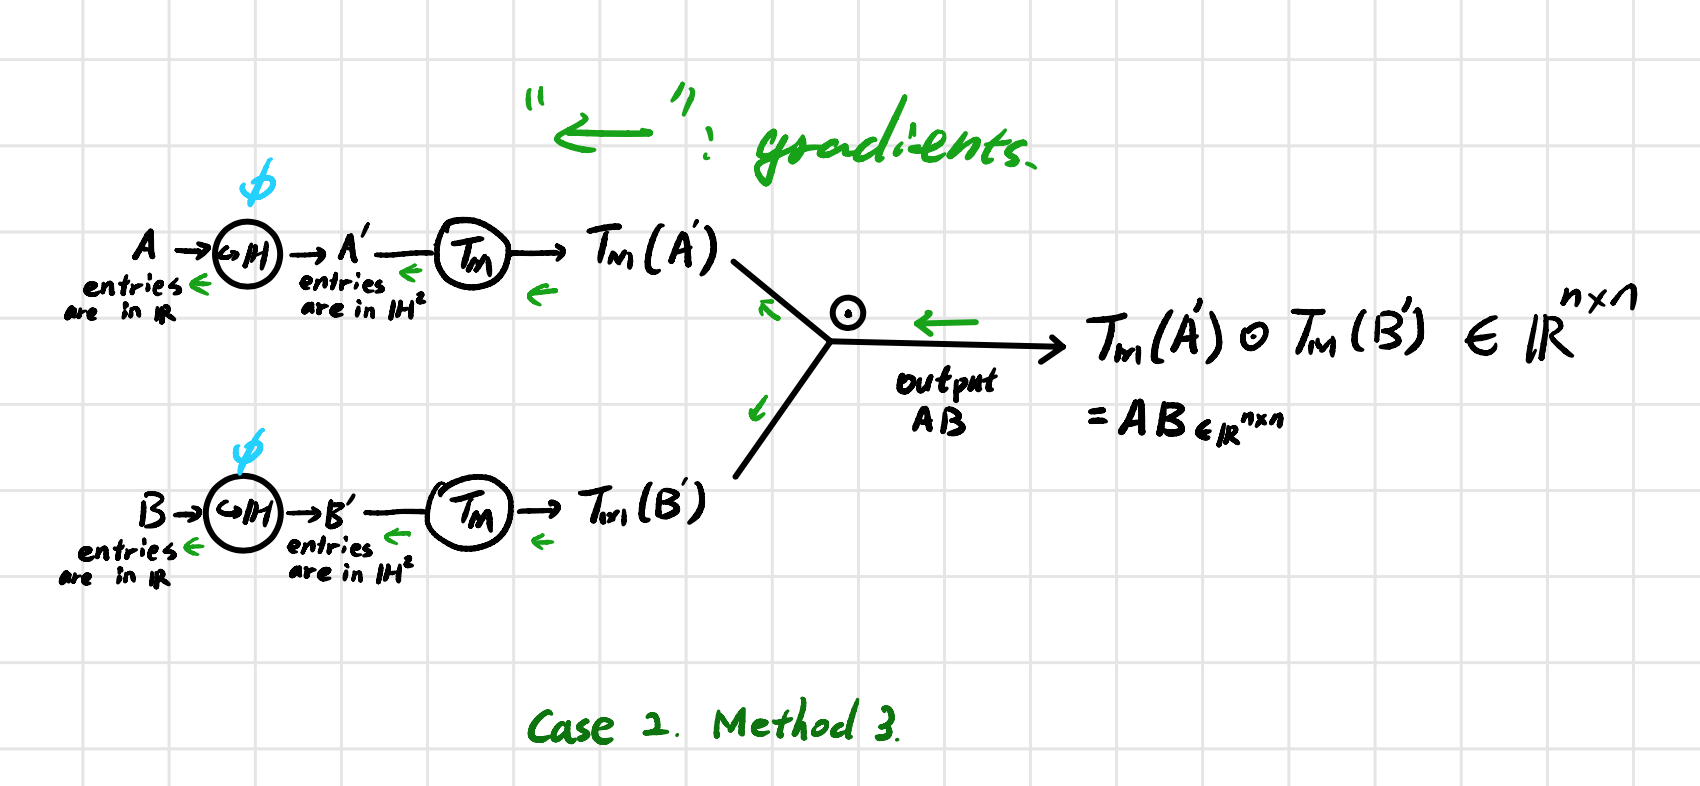 "←": gradients.
ϕ
A → ↪H → A' — T_M → T_M(A')
entries are in ℝ
entries are in H²
⊙
output AB
T_M(A') ⊙ T_M(B') ∈ ℝ^{n×n}
= AB ∈ ℝ^{n×n}
ϕ
B → ↪H → B' — T_M → T_M(B')
entries are in ℝ
entries are in H²
Case 2. Method 3.